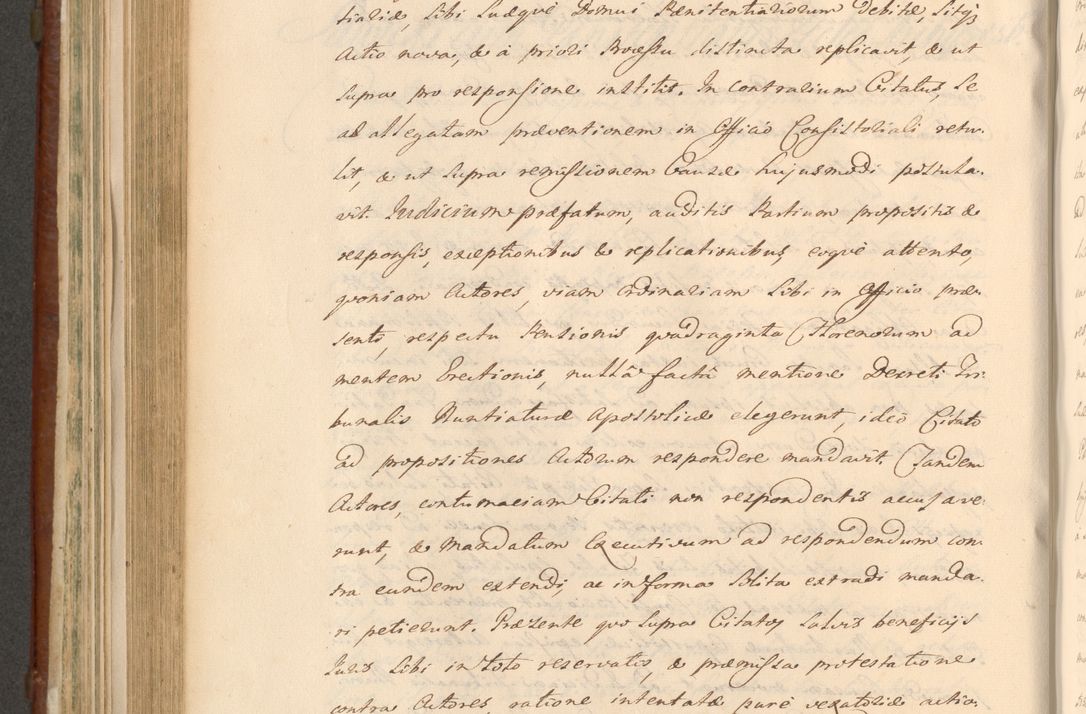 tiariæ, sibi suæque Domui Pænitentiariorum debitæ, sitq3
Actio nova, & à priori Processu distincta replicavit, & ut
supra pro responsione institit. In contrarium Citatus, se
ad allegatam præventionem in Officio Consistoriali retu-
lit, & ut supra remissionem Causæ hujusmodi postula-
vit. Judicium præfatum, auditis Partium propositis &
responsis, exceptionibus & replicationibus, eoque attento,
quoniam Actores, viam ordinariam sibi in Officio præ-
senti, respectu Pensionis quadraginta Florenorum ad
mentem Erectionis, nullâ factâ mentione Decreti Tri-
bunalis Nuntiaturæ Apostolicæ elegerunt, ideo Citato
ad propositiones Actorum respondere mandavit. Tandem
Actores, contumaciam Citati non respondentis accusave-
runt, & Mandatum Executivum ad respondendum con-
tra eundem extendi, ac in forma solita extradi manda-
ri petierunt. Præsente quo supra Citatq3 salvis beneficijs
Juris sibi in toto reservatis, & præmissa protestatione
contra Actores, ratione intentatæ pure vexatoriæ actio-